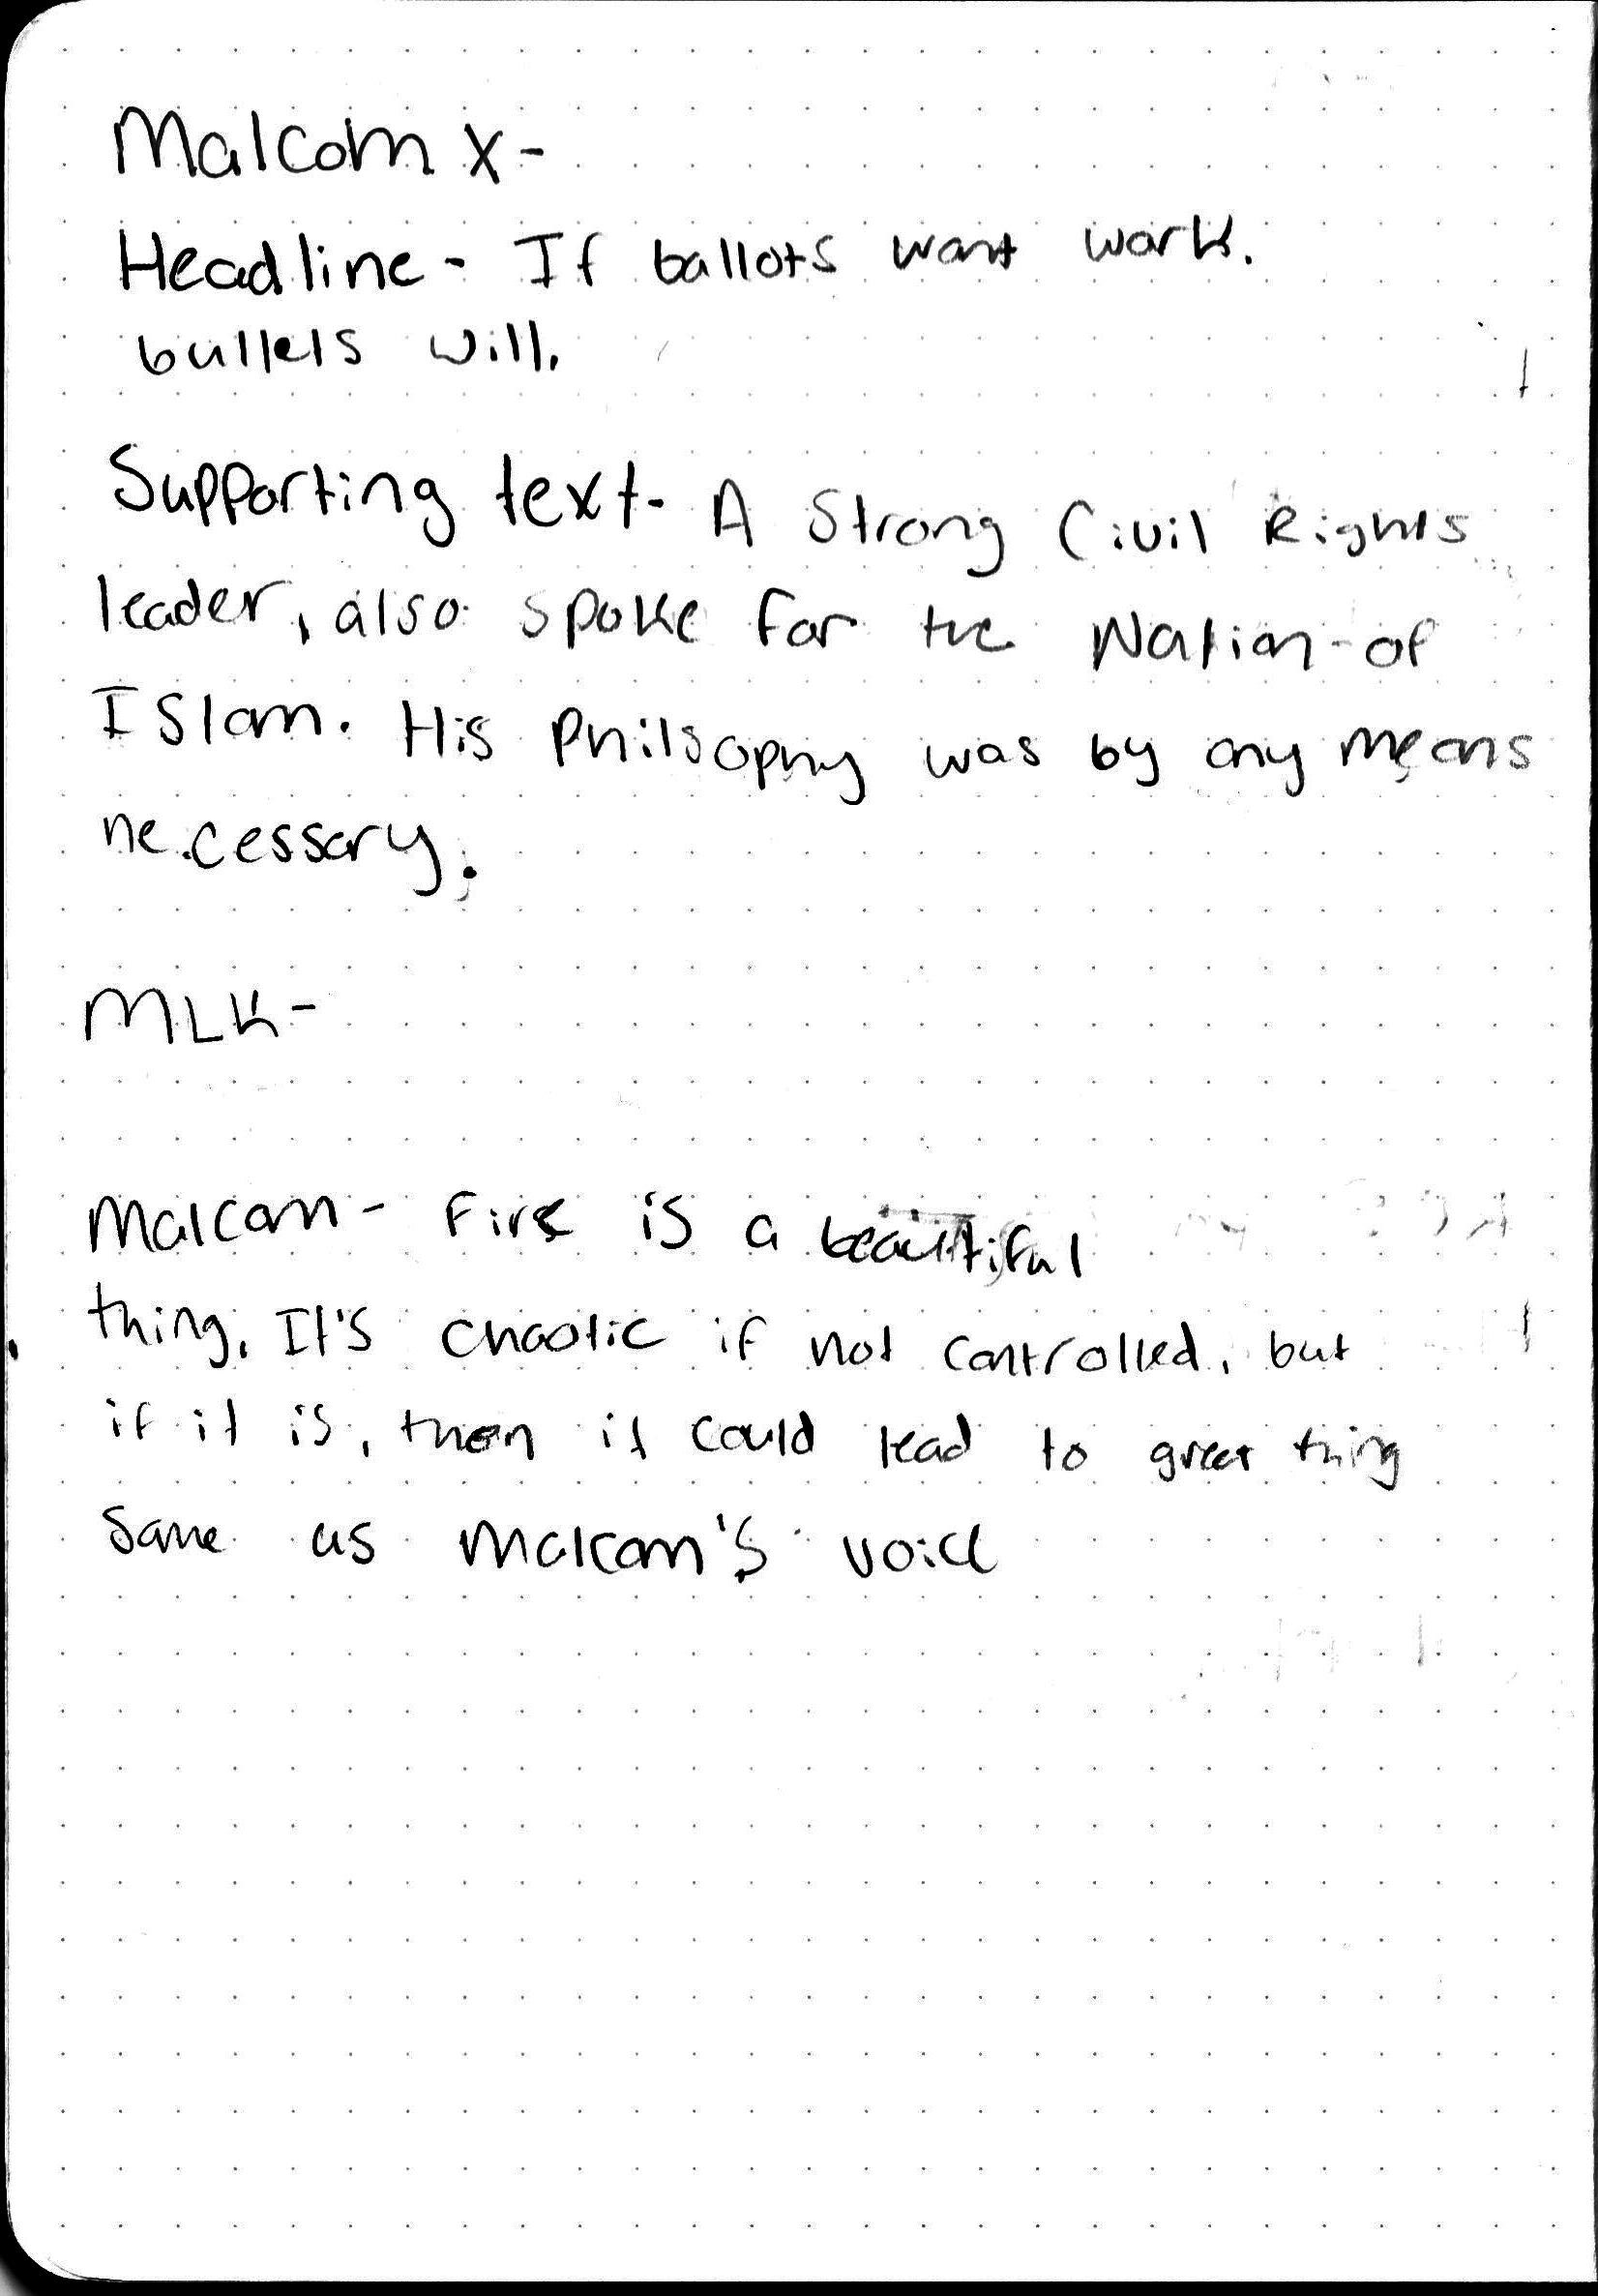 Malcom X-
Headline - If ballots wont work.
bullets will.
Supporting text- A Strong Civil Rights
leader, also spoke for the Nation-of
Islam. His Philsophy was by any means
necessary.
MLK-
Malcom - Fire is a beautiful
thing. It's chaotic if not controlled, but
if it is, then it could lead to great thing
same as Malcom's voice